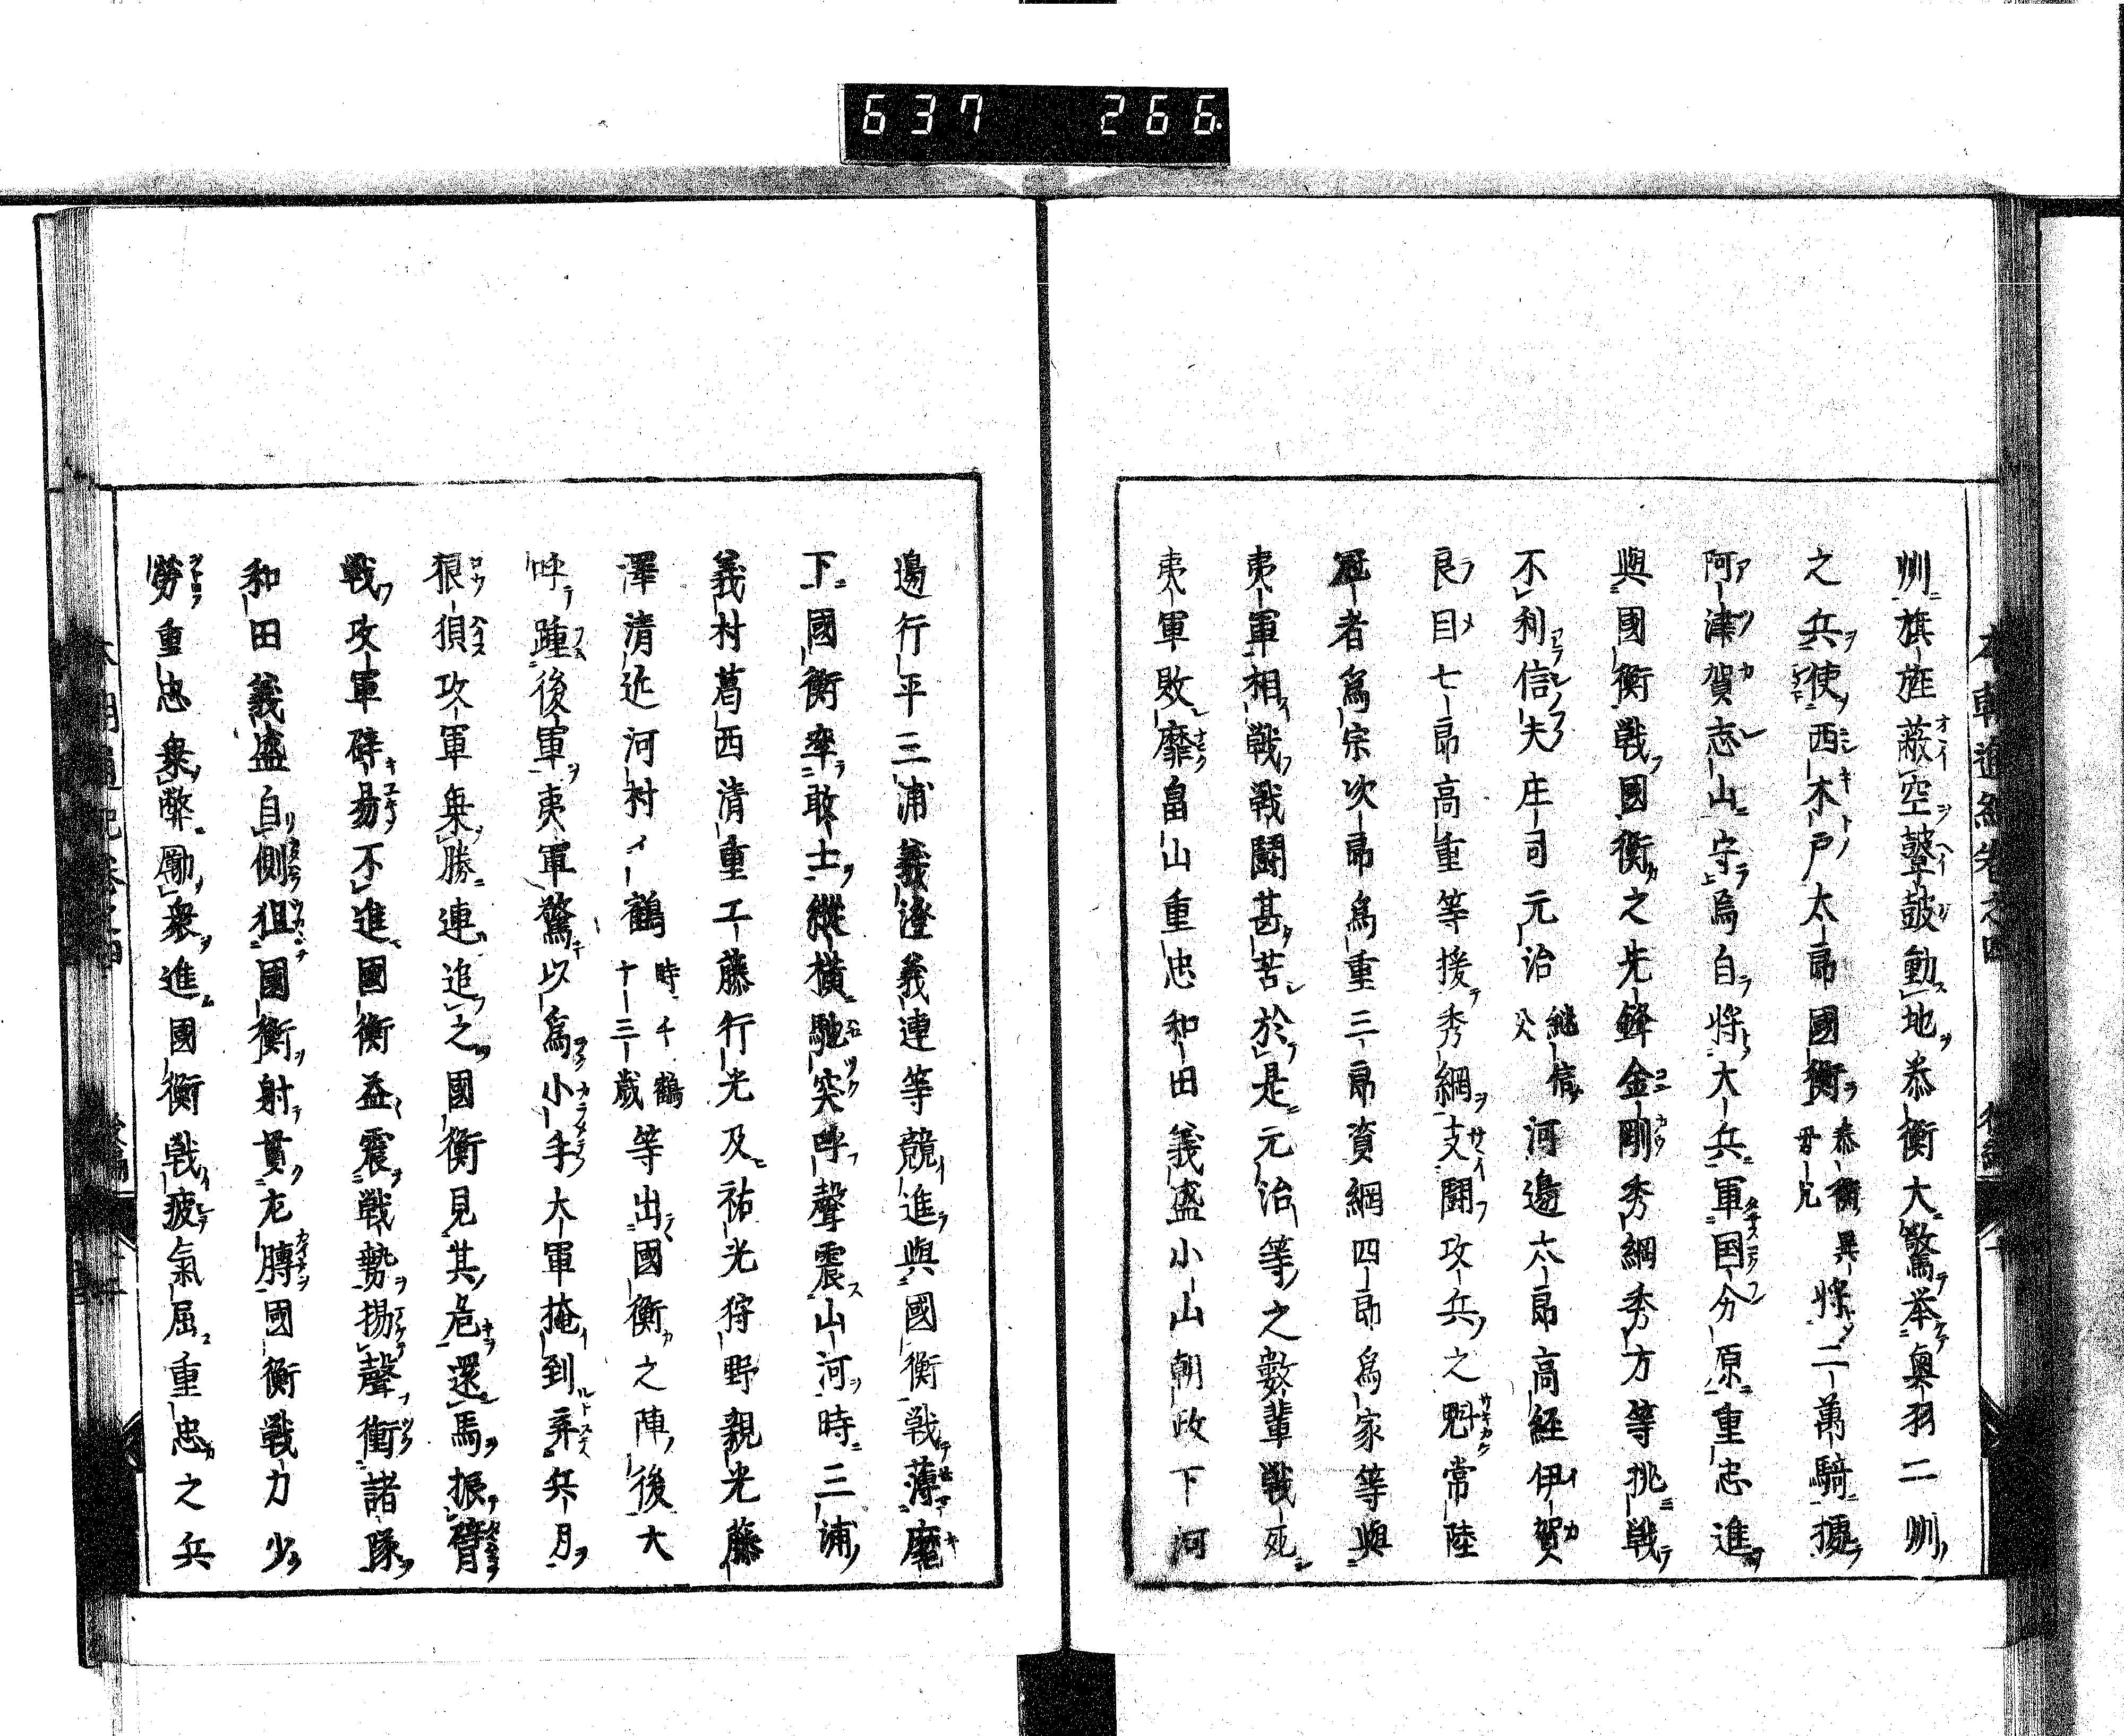 637 266
州旗旌蔽空鼙鼓動地泰衡大驚挙奥羽二州
之兵使西木戸太郎國衡泰衡異母兄将二萬騎擾
阿津賀志山守焉自将大兵軍国分原重忠進
與國衡戦國衡之先鋒金剛秀綱秀方等挑戦
不利信夫庄司元治継信父河邉太郎高経伊賀
良目七郎高重等援秀綱支闘攻兵之魁常陸
冠者為宗次郎為重三郎資綱四郎為家等與
夷軍相戦戦闘甚苦於是元治等之數輩戦死
夷軍敗靡畠山重忠和田義盛小山朝政下河
邉行平三浦義澄義連等競進與國衡戦薄麾
下國衡率敢士縱横馳突呼聲震山河時三浦
義村葛西清重工藤行光及祐光狩野親光藤
澤清近河村千鶴時千鶴十三歳等出國衡之陣後大
呼踵後軍夷軍驚以為小手大軍掩到弃兵
狼狽攻軍乗勝連追之國衡見其危還馬振臂
戦攻軍辟易不進國衡益震戦勢揚聲衝諸隊
和田義盛自側狙國衡射貫左膊國衡戦力少
勞重忠乗弊勵衆進國衡戦疲氣屈重忠之兵